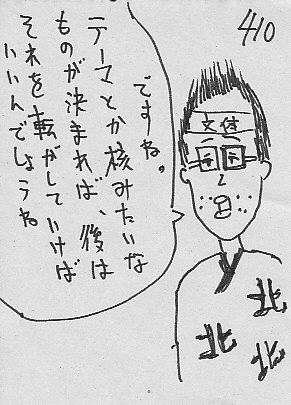 410
ですね。
テーマとか核みたいな
ものが決まれば、後は
それを転がしていけば
いいんでしょうね
文体
北
北
北